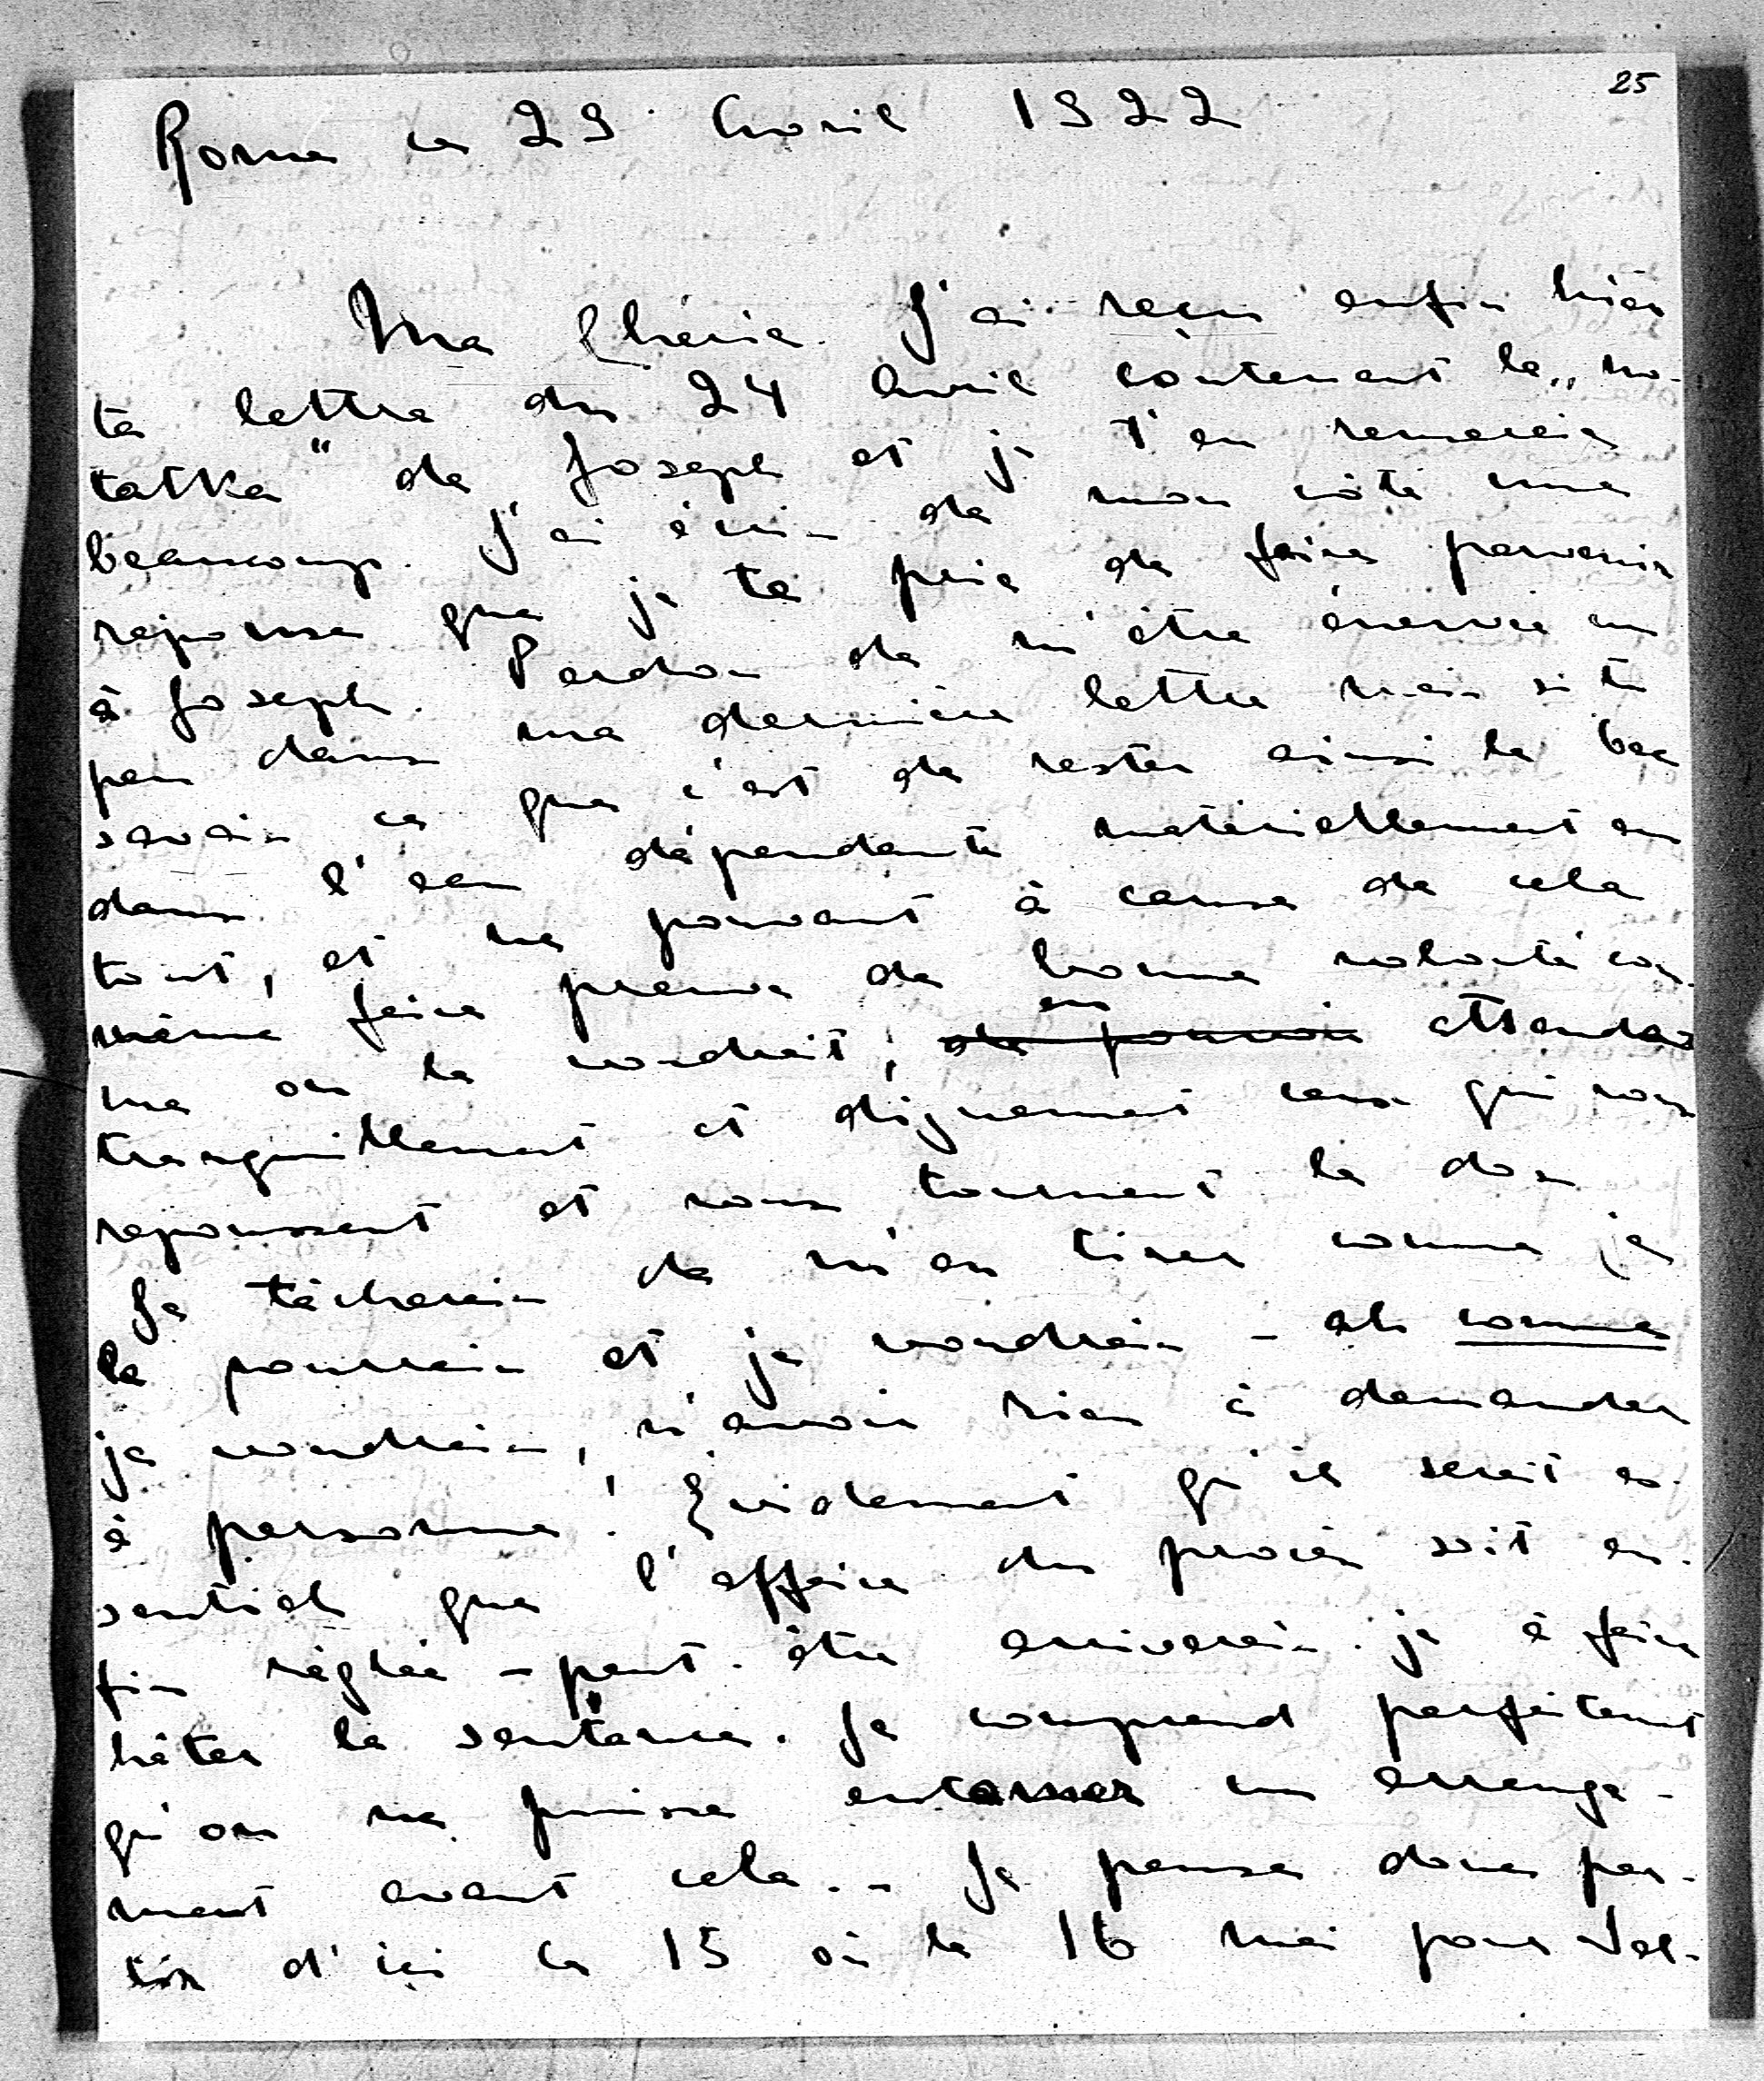 25
Rome ce 29 Avril 1922
Ma Chérie. J'ai reçu enfin hier
ta lettre du 24 Avril contenant la „no-
tatka" de Joseph et je t'en remercie
beaucoup. J'ai écris de mon côté une
reponse que je te prie de faire parvenir
à Joseph. Pardon de m'être énervée un
peu dans ma dernière lettre mais si tu
savais ce que c'est de rester ainsi le bec
dans l'eau dépendante matériellement en
tout, et ne pouvant à cause de cela
même faire preuve de bonne volonté com-
me on le voudrait, en attendre
tranquillement et dignement ceux qui vous
repoussent et vous tournent le dos.
Je tâcherais de m'en tirer comme je
le pourrais et je voudrais - ah comme
je voudrais, n'avoir rien à demander
à personne! Evidement qu'il serait es-
sentiel que l'affaire du procès soit en-
fin réglée - peut-être arriverais-je à faire
hâter la sentence. Je comprend parfaitement
qu'on ne puisse entamer un arrange-
ment avant cela. - Je pense donc par-
tir d'ici le 15 où le 16 mai pour Sal-